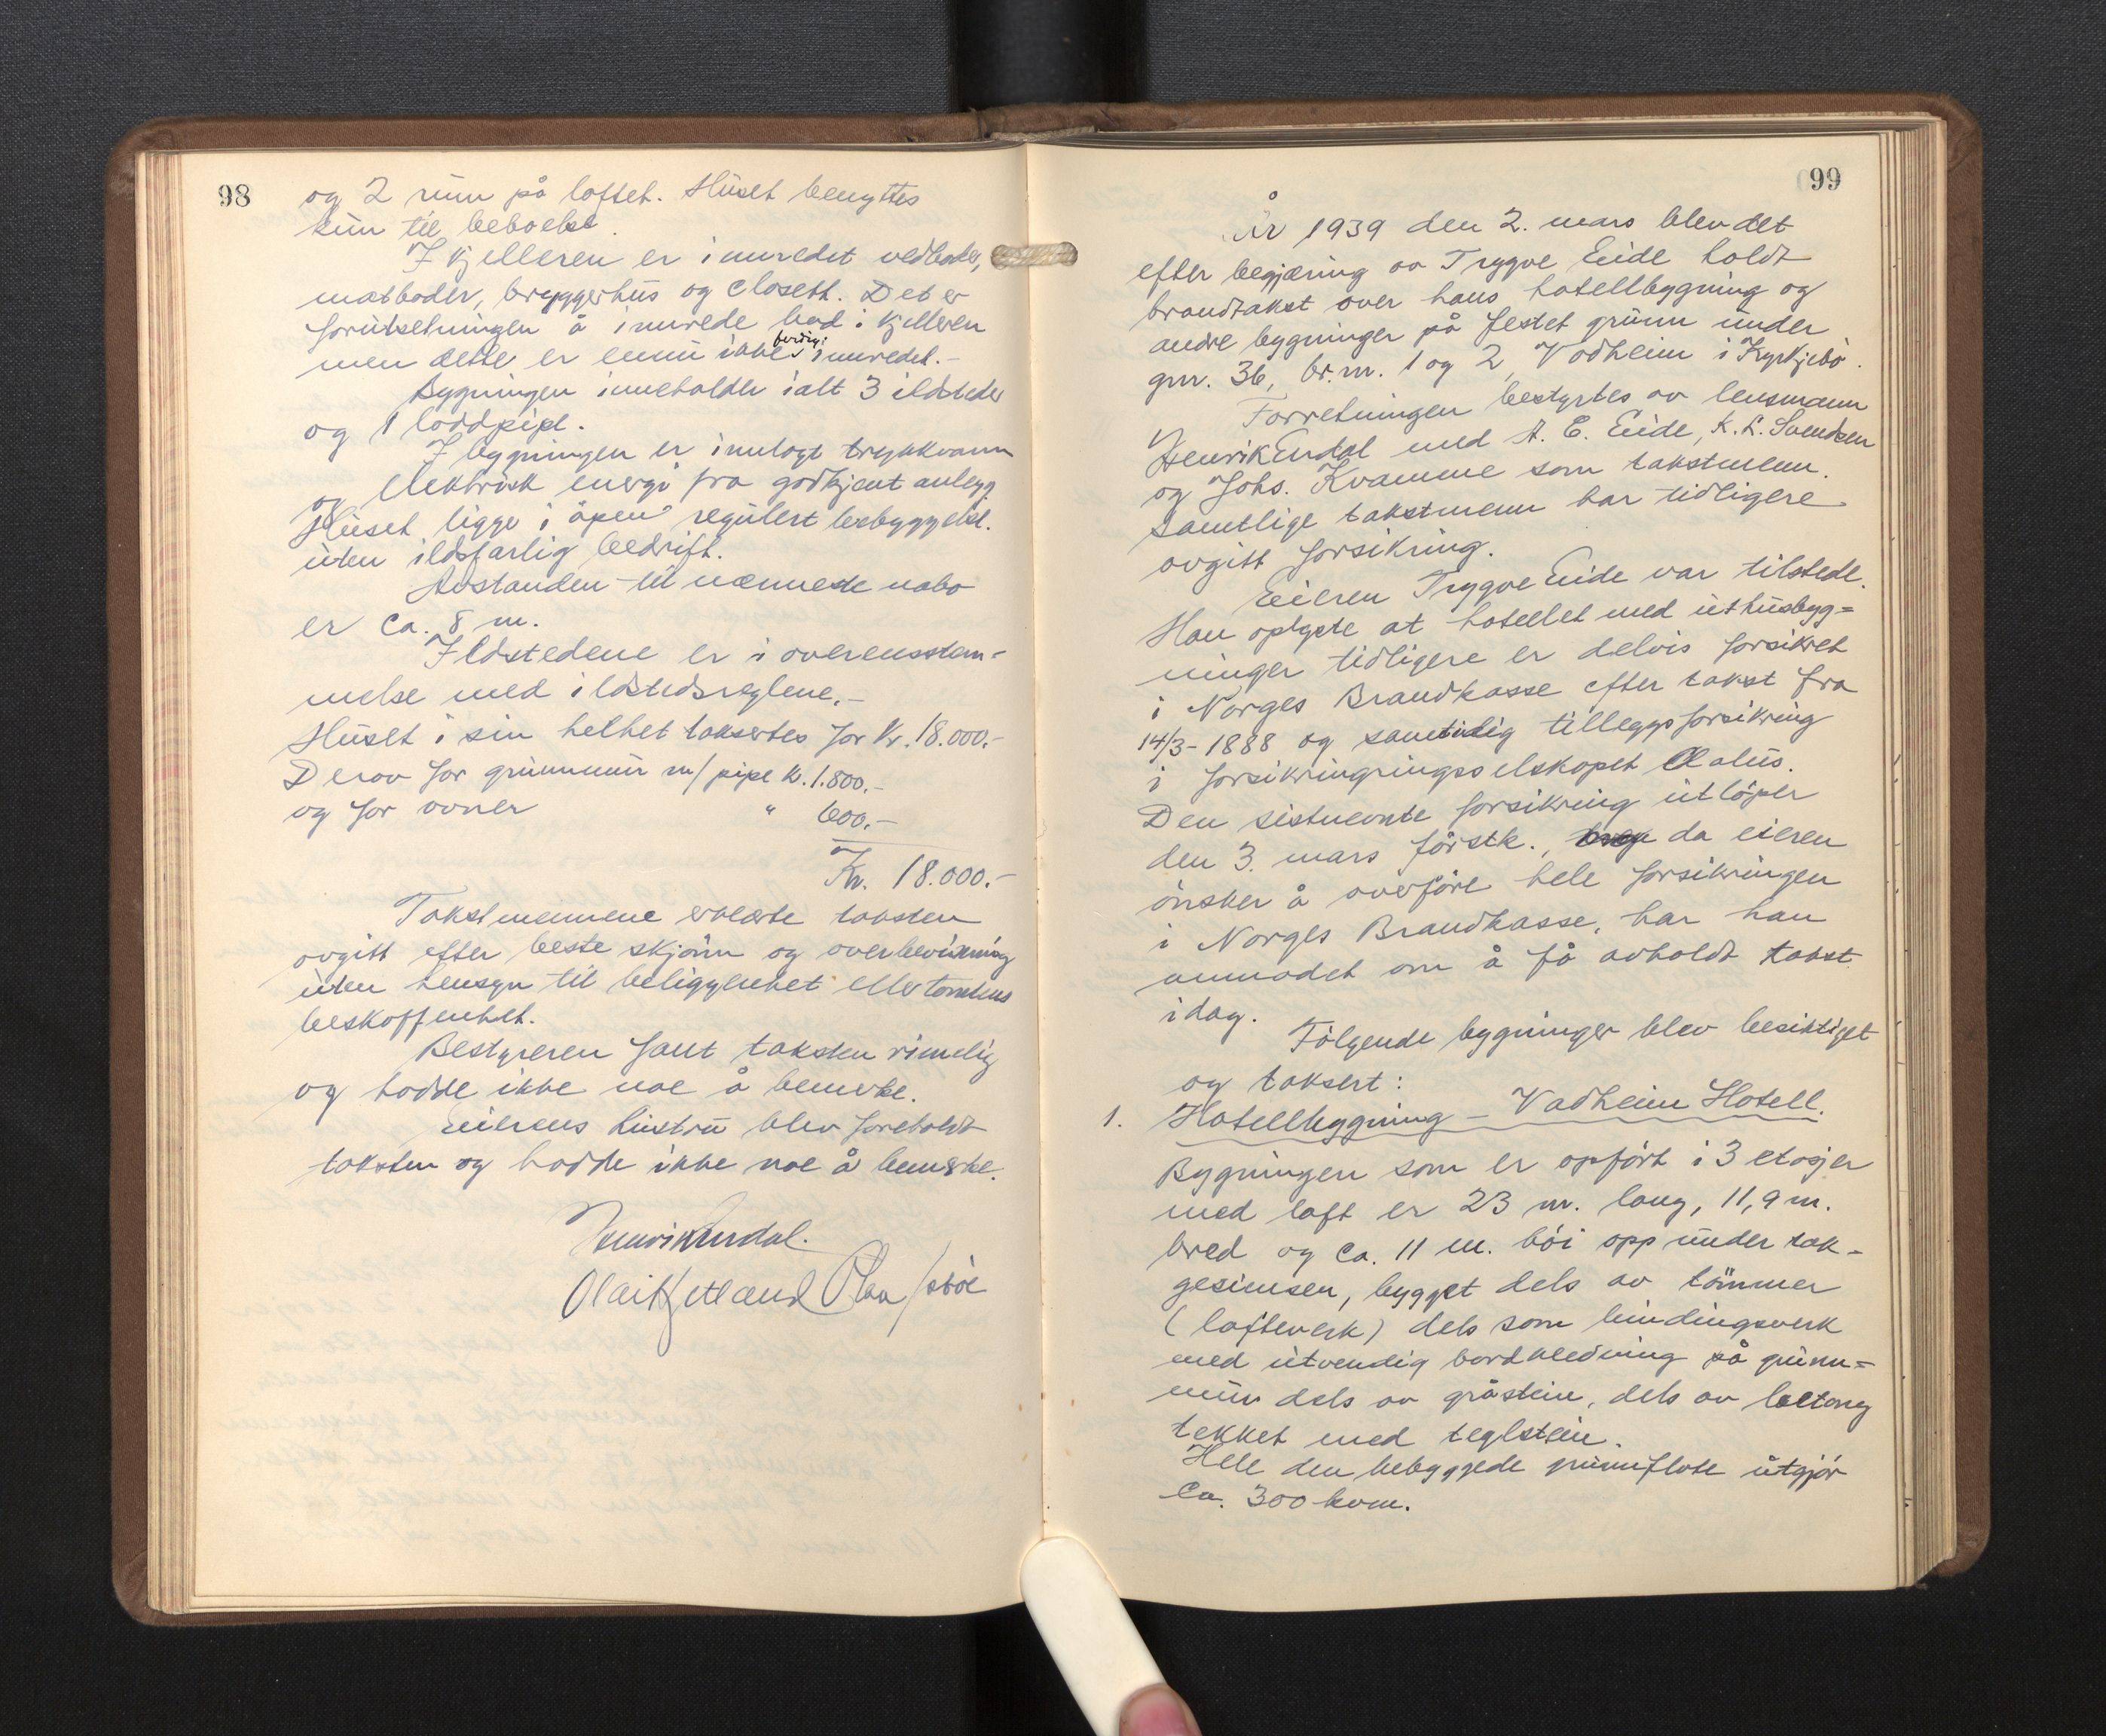 98
og 2 rum på loftet. Huset benyttes
kun til beboelse.
I kjelleren er innredet vedboder,
matboder, bryggerhus og closett. Det er
forutsetningen å innrede bad i kjelleren
men dette er ennu ikke ferdig innredet.-
Bygningen inneholder ialt 3 ildsteder
og 1 loddpipe.
I bygningen er innlagt trykkvann
og elektrisk energi fra godkjent anlegg.
Huset ligge i åpen regulert bebyggelse.
uten ildsfarlig bedrift.
Avstanden til nærmeste nabo
er ca. 8 m.
Ildstedene er i overensstem-
melse med ildstedsreglene.-
Huset i sin helhet taksertes for Kr. 18.000.-
Derav for grunnmur m/ pipe Kr. 1.800.-
og for ovner " 600.-
Kr. 18.000.-
Takstmennene erklærte taksten
avgitt efter beste skjönn og overbevisning
uten hensyn til beliggenhet eller tomtens
beskaffenhet.
Bestyreren fant taksten rimelig
og hadde ikke noe å bemerke.
Eierens hustru blev foreholdt
taksten og hadde ikke noe å bemerke.
Henrik Endal.
Olai Hjetland
99
År 1939 den 2. mars blev det
efter begjæring av Trygve Eide holdt
brandtakst over hans hotellbygning og
andre bygninger på festet grunn under
gnr. 36, br.nr. 1 og 2, Vadheim i Kyrkjebö.
Forretningen bestyrtes av lensmann
Henrik Endal med A. E. Eide, K. L. Svendsen
og Johs. Kvamme som takstmenn.
Samtlige takstmenn har tidligere
avgitt forsikring.
Eieren Trygve Eide var tilstede.
Han oplyste at hotellet med uthusbyg=
ninger tidligere er delvis forsikret
i Norges Brandkasse efter takst fra
14/3-1888 og samtidig tilleggsforsikring
i forsikringringsselskapet Æolus.
Den sistnevnte forsikring utlöper
den 3. mars förstk., da eieren
önsker å overföre hele forsikringen
i Norges Brandkasse, har han
anmodet om å få avholdt takst
idag.
Fölgende bygninger blev besiktiget
og taksert:
1. Hotellbygning - Vadheim Hotell.
Bygningen som er opfört i 3 etasjer
med loft er 23 m. lang, 11,9 m.
bred og ca. 11 m. höi opp under tak-
gesimsen, bygget dels av tömmer
(lafteverk) dels som bindingsverk
med utvendig bordkledning på grunn=
mur dels av gråstein, dels av betong
tekket med teglstein.
Hele den bebyggede grunnflate utgjör
Ca. 300 kvm.